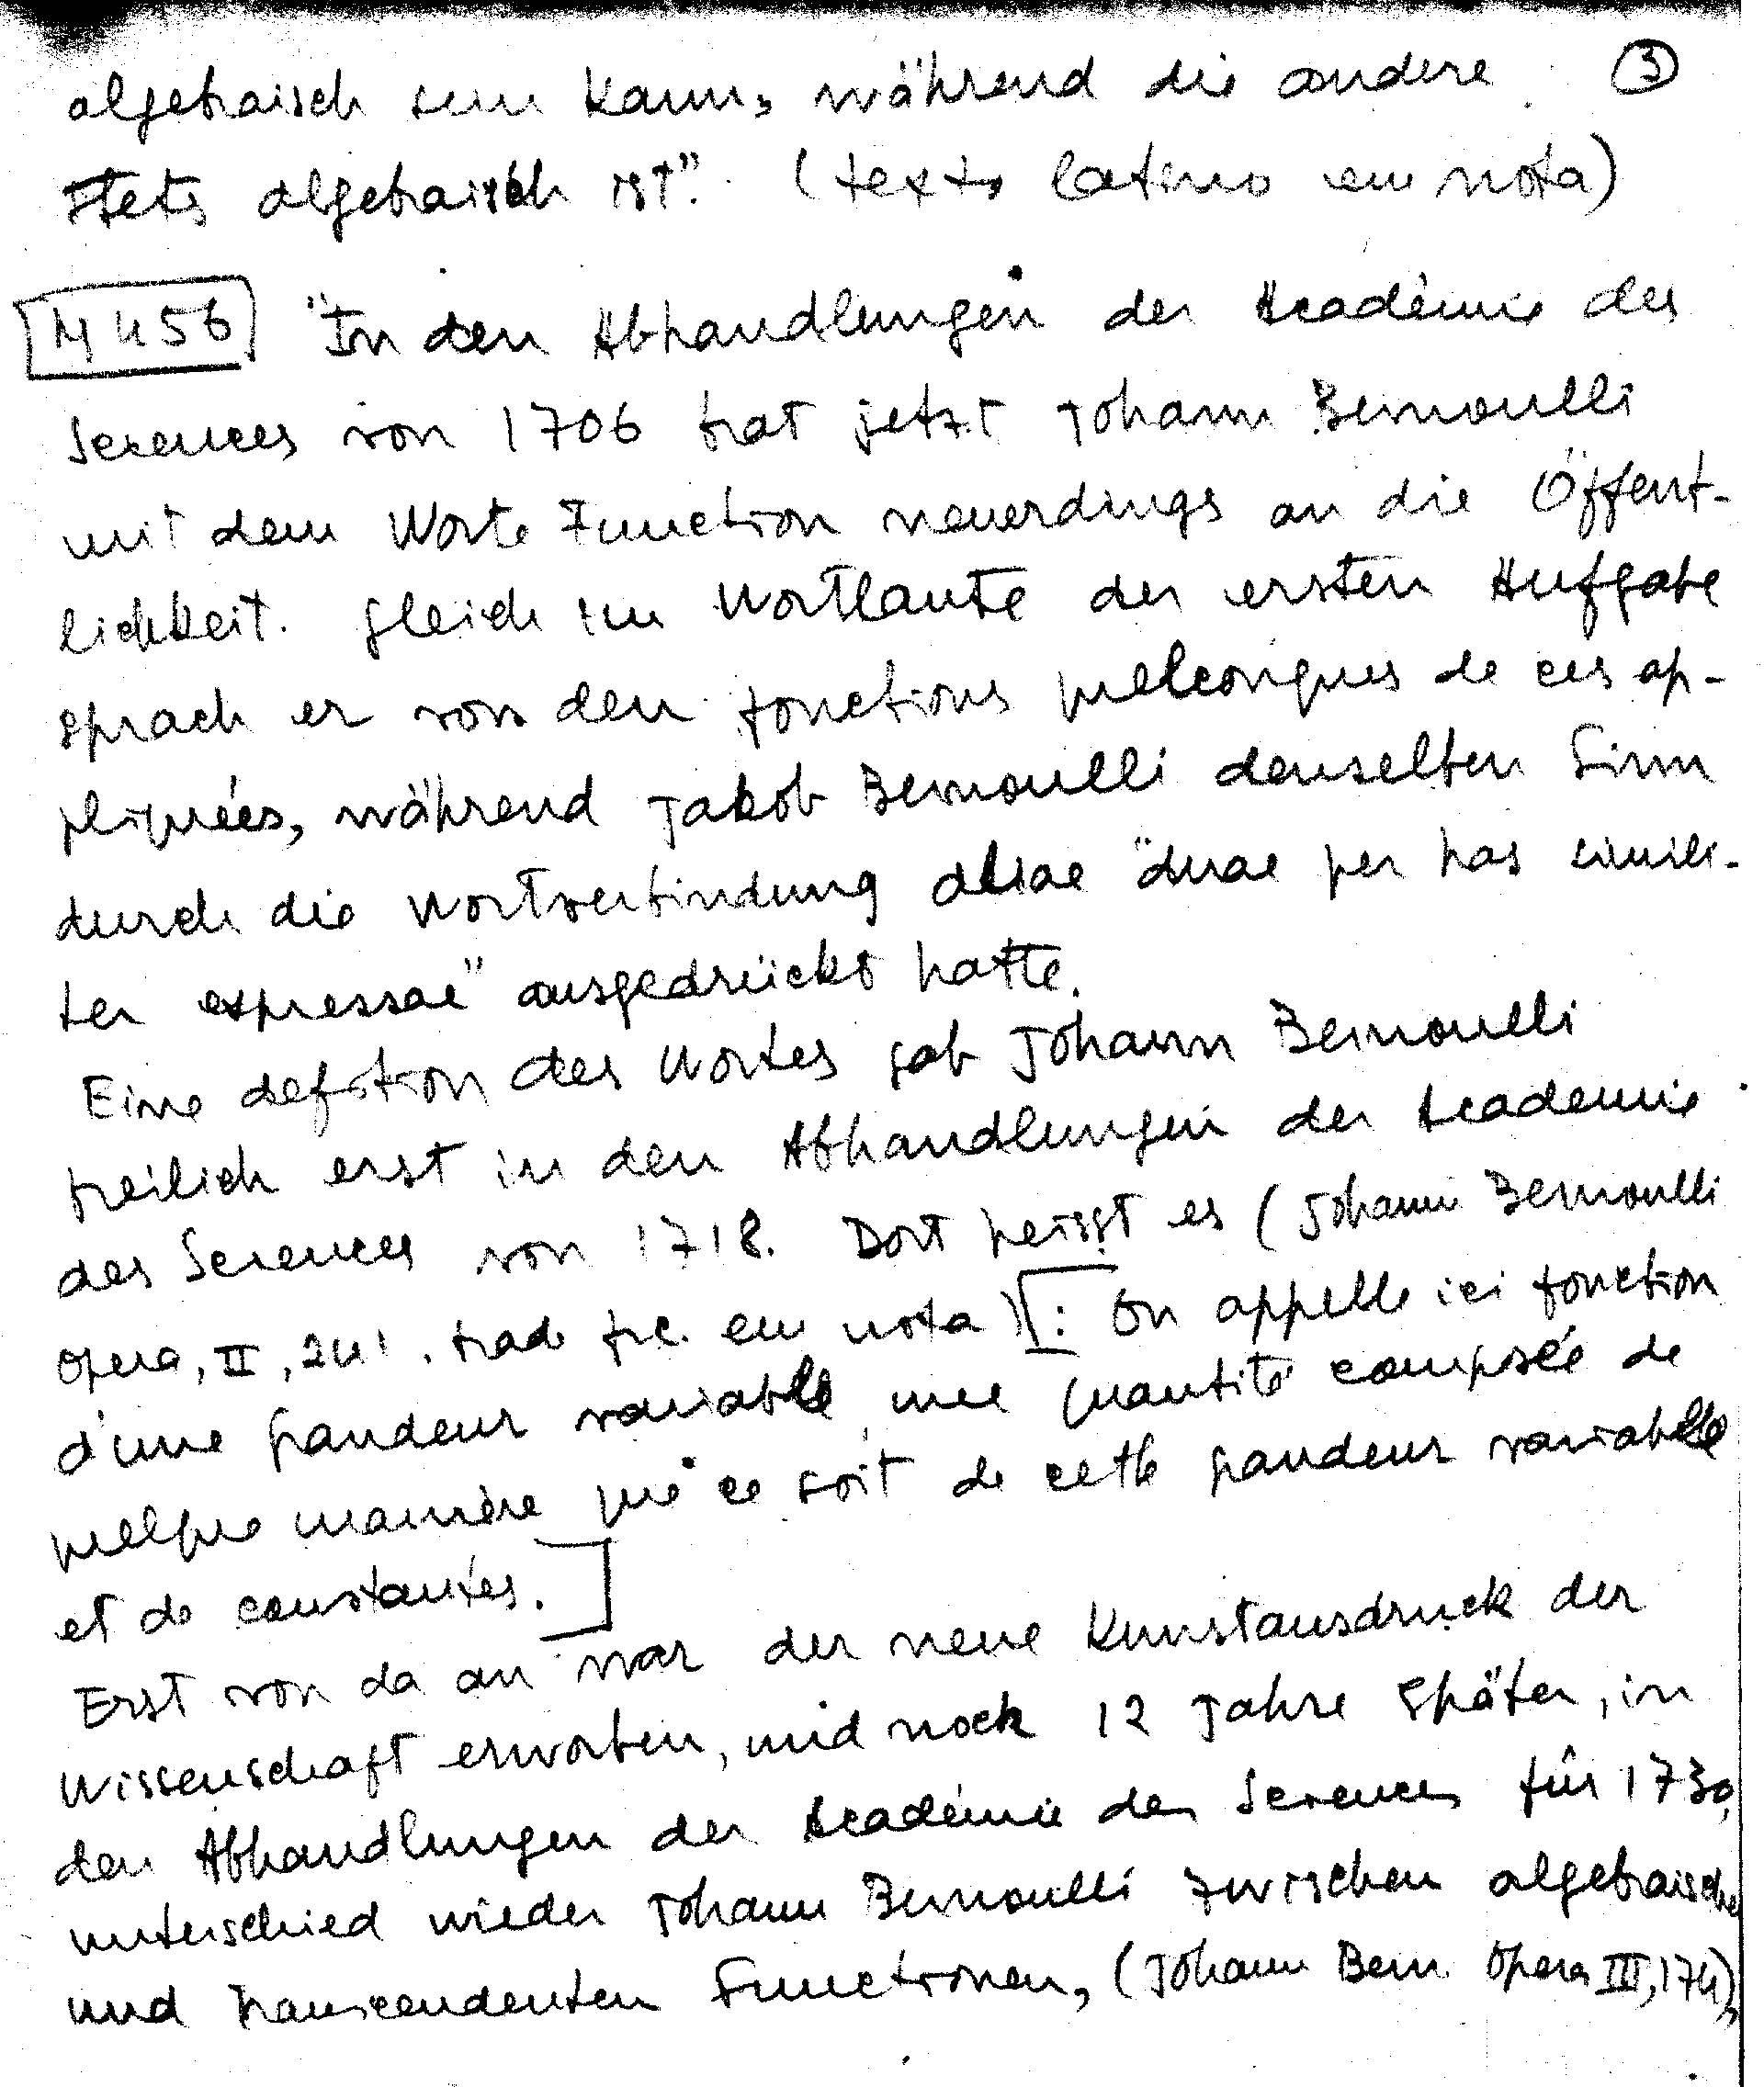 algebraisch sein kann, während die andere ③
stets algebraisch ist". (texto latino em nota)
M 456 "In den Abhandlungen der Académie des
Sciences von 1706 trat jetzt Johann Bernoulli
mit dem Worte Function neuerdings an die Öffent-
lichkeit. Gleich im Wortlaute der ersten Aufgabe
sprach er von den fonctions quelconques de ces ap-
pliquées, während Jakob Bernoulli denselben Sinn
durch die Wortverbindung aliae "duae per has simili-
ter expressae" ausgedrückt hatte.
Eine defition des Wortes gab Johann Bernoulli
freilich erst in den Abhandlungen der Academie
des Sciences von 1718. Dort heisst es (Johann Bernoulli
Opera, II, 241. trad fre. em nota) [: On appelle ici fonction
d'une grandeur variable, une quantité composée de
quelque manière que ce soit de cette grandeur variable
et de constantes.]
Erst von da an war der neue Kunstausdruck der
Wissenschaft erworben, und noch 12 Jahre später, in
den Abhandlungen der Académie des Sciences für 1730,
unterschied wieder Johann Bernoulli zwischen algebraischen
und transcendenten Functionen, (Johann Bern Opera III, 174),